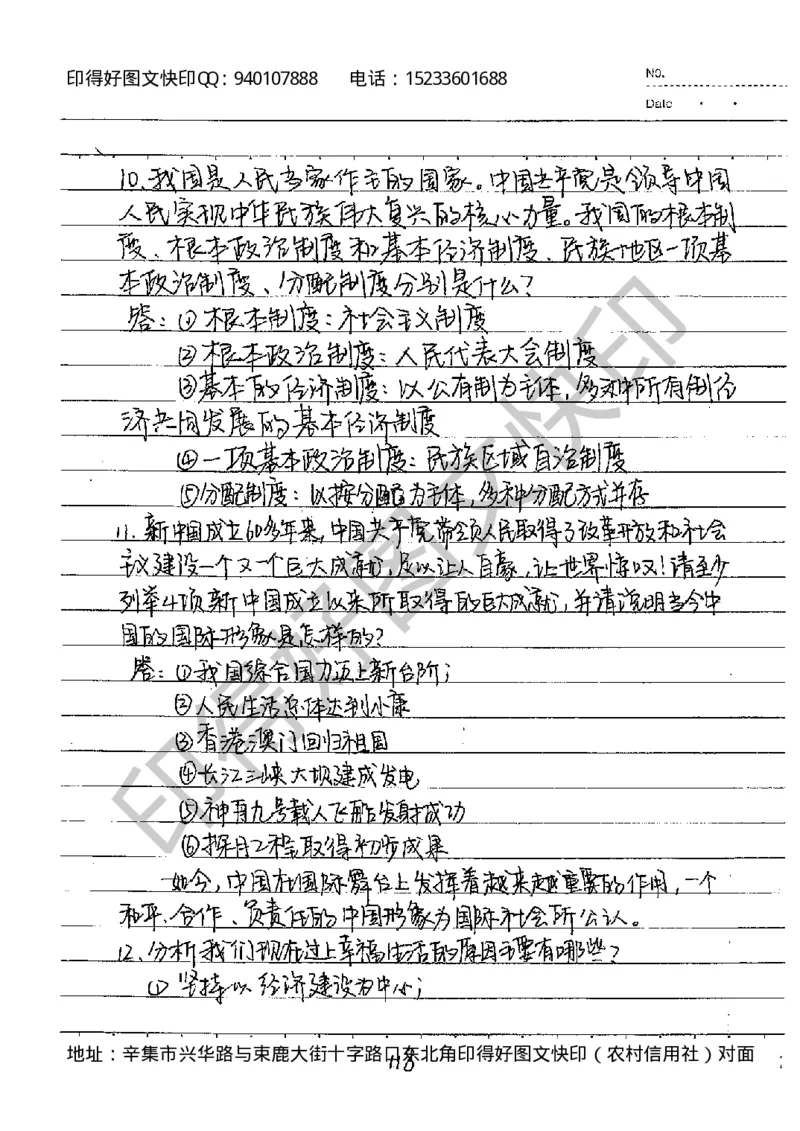 印得好图文快印QQ：940107888 电话：15233601688
No.
Date
10.我国是人民当家作主的国家。中国共产党是领导中国
人民实现中华民族伟大复兴的核心力量。我国的根本制
度、根本政治制度和基本经济制度、民族地区一项基
本政治制度、分配制度分别是什么？
答：①根本制度：社会主义制度
②根本政治制度：人民代表大会制度
③基本的经济制度：以公有制为主体，多种所有制经
济共同发展的基本经济制度
④一项基本政治制度：民族区域自治制度
⑤分配制度：以按分配为主体、多种分配方式并存
11.新中国成立60多年来，中国共产党带领人民取得了改革开放和社会
主议建设一个又一个巨大成就，足以让人自豪，让世界惊叹！请至少
列举4项新中国成立以来所取得的巨大成就，并请说明当今中
国的国际形象是怎样的？
答：①我国综合国力迈上新台阶；
②人民生活总体达到小康
③香港澳门回归祖国
④长江三峡大坝建成发电
⑤神舟九号载人飞船发射成功
⑥探月工程取得初步成果
如今，中国在国际舞台上发挥着越来越重要的作用，一个
和平、合作、负责任的中国形象为国际社会所公认。
12、分析我们现在过上幸福生活的原因主要有哪些？
①坚持以经济建设为中心；
地址：辛集市兴华路与束鹿大街十字路口东北角印得好图文快印（农村信用社）对面
113
印得好图文快印